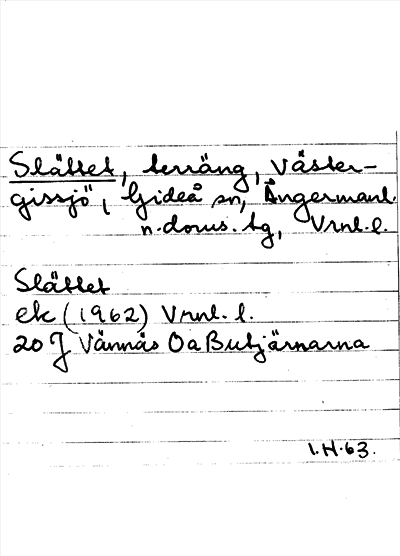 Slättet, terräng, Väster-
gissjö, Gideå sn, Ångermanl.
n. doms. tg, Vrnl. l.
Slättet
ek (1962) Vrnl. l.
20 J Vännäs Oa Butjärnarna
1.H.63.